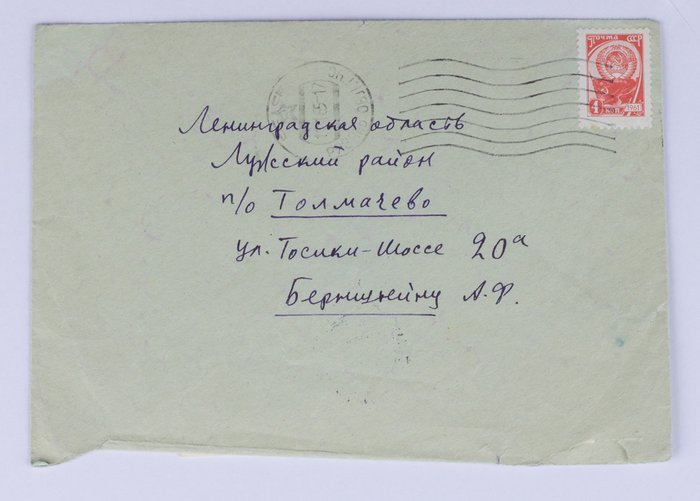 Почта СССР
4 коп 1961
Ленинградская область
Лужский район
п/о Толмачево
ул. Тосики-Шоссе 20а
Бернштейну А.Ф.